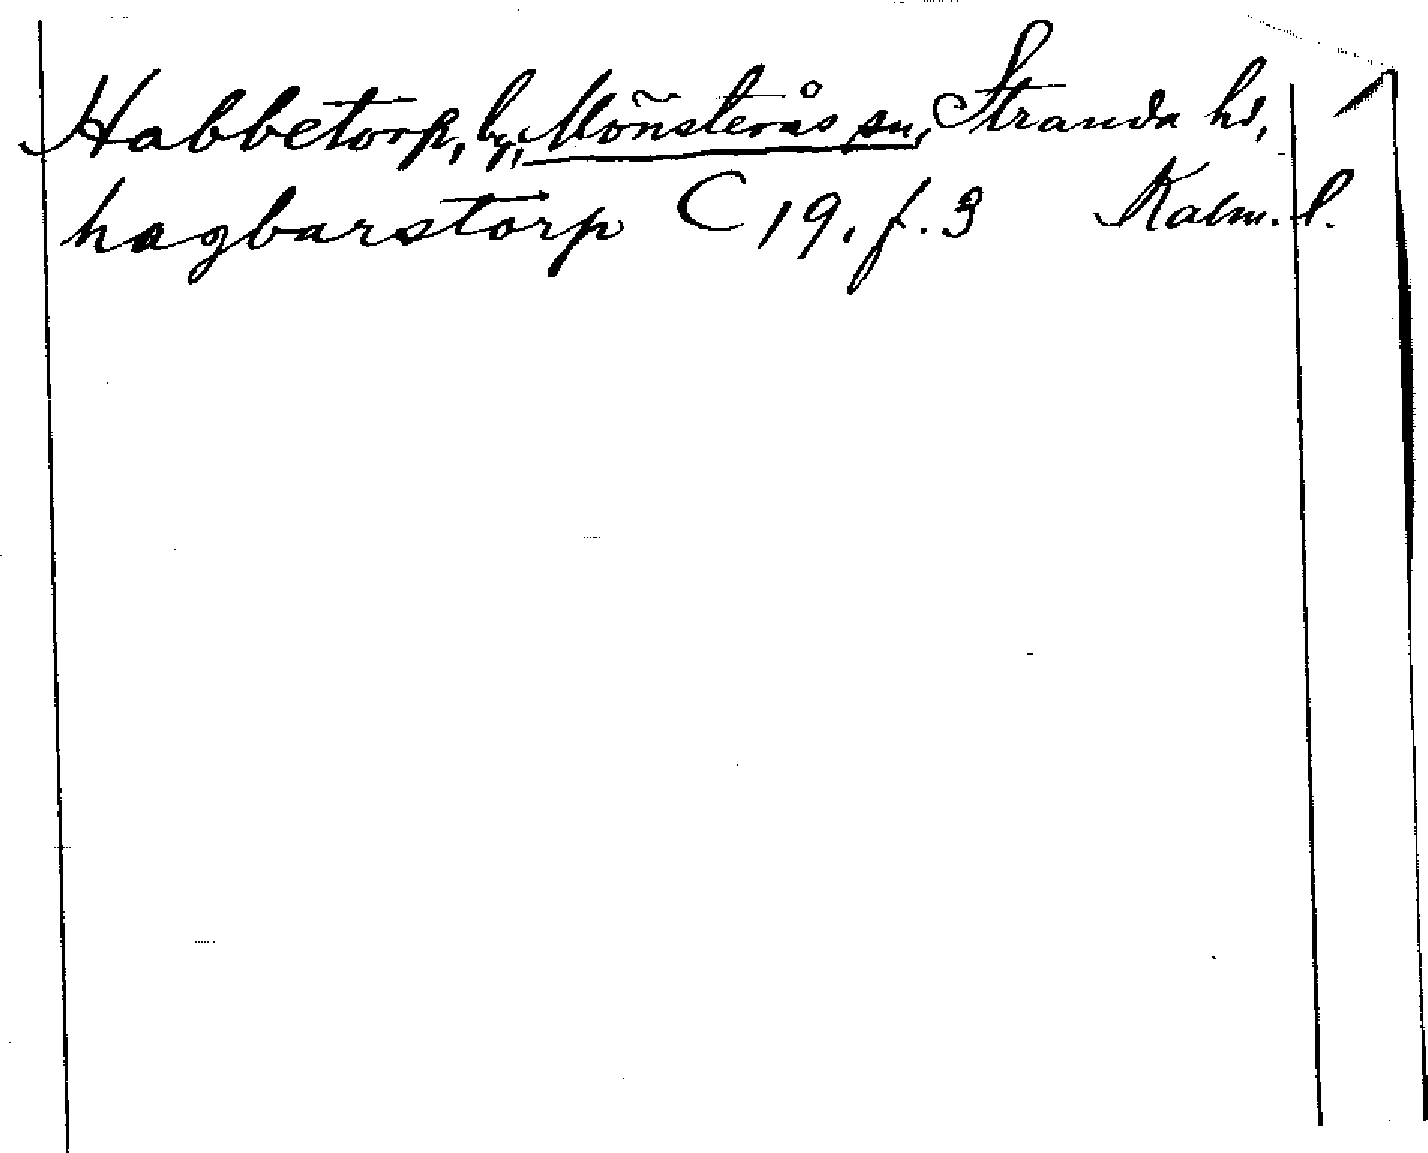 Habbetorp, by, Mönsterås sn, Stranda hd,
hagbarstorp C 19, f. 3 Kalm. l.